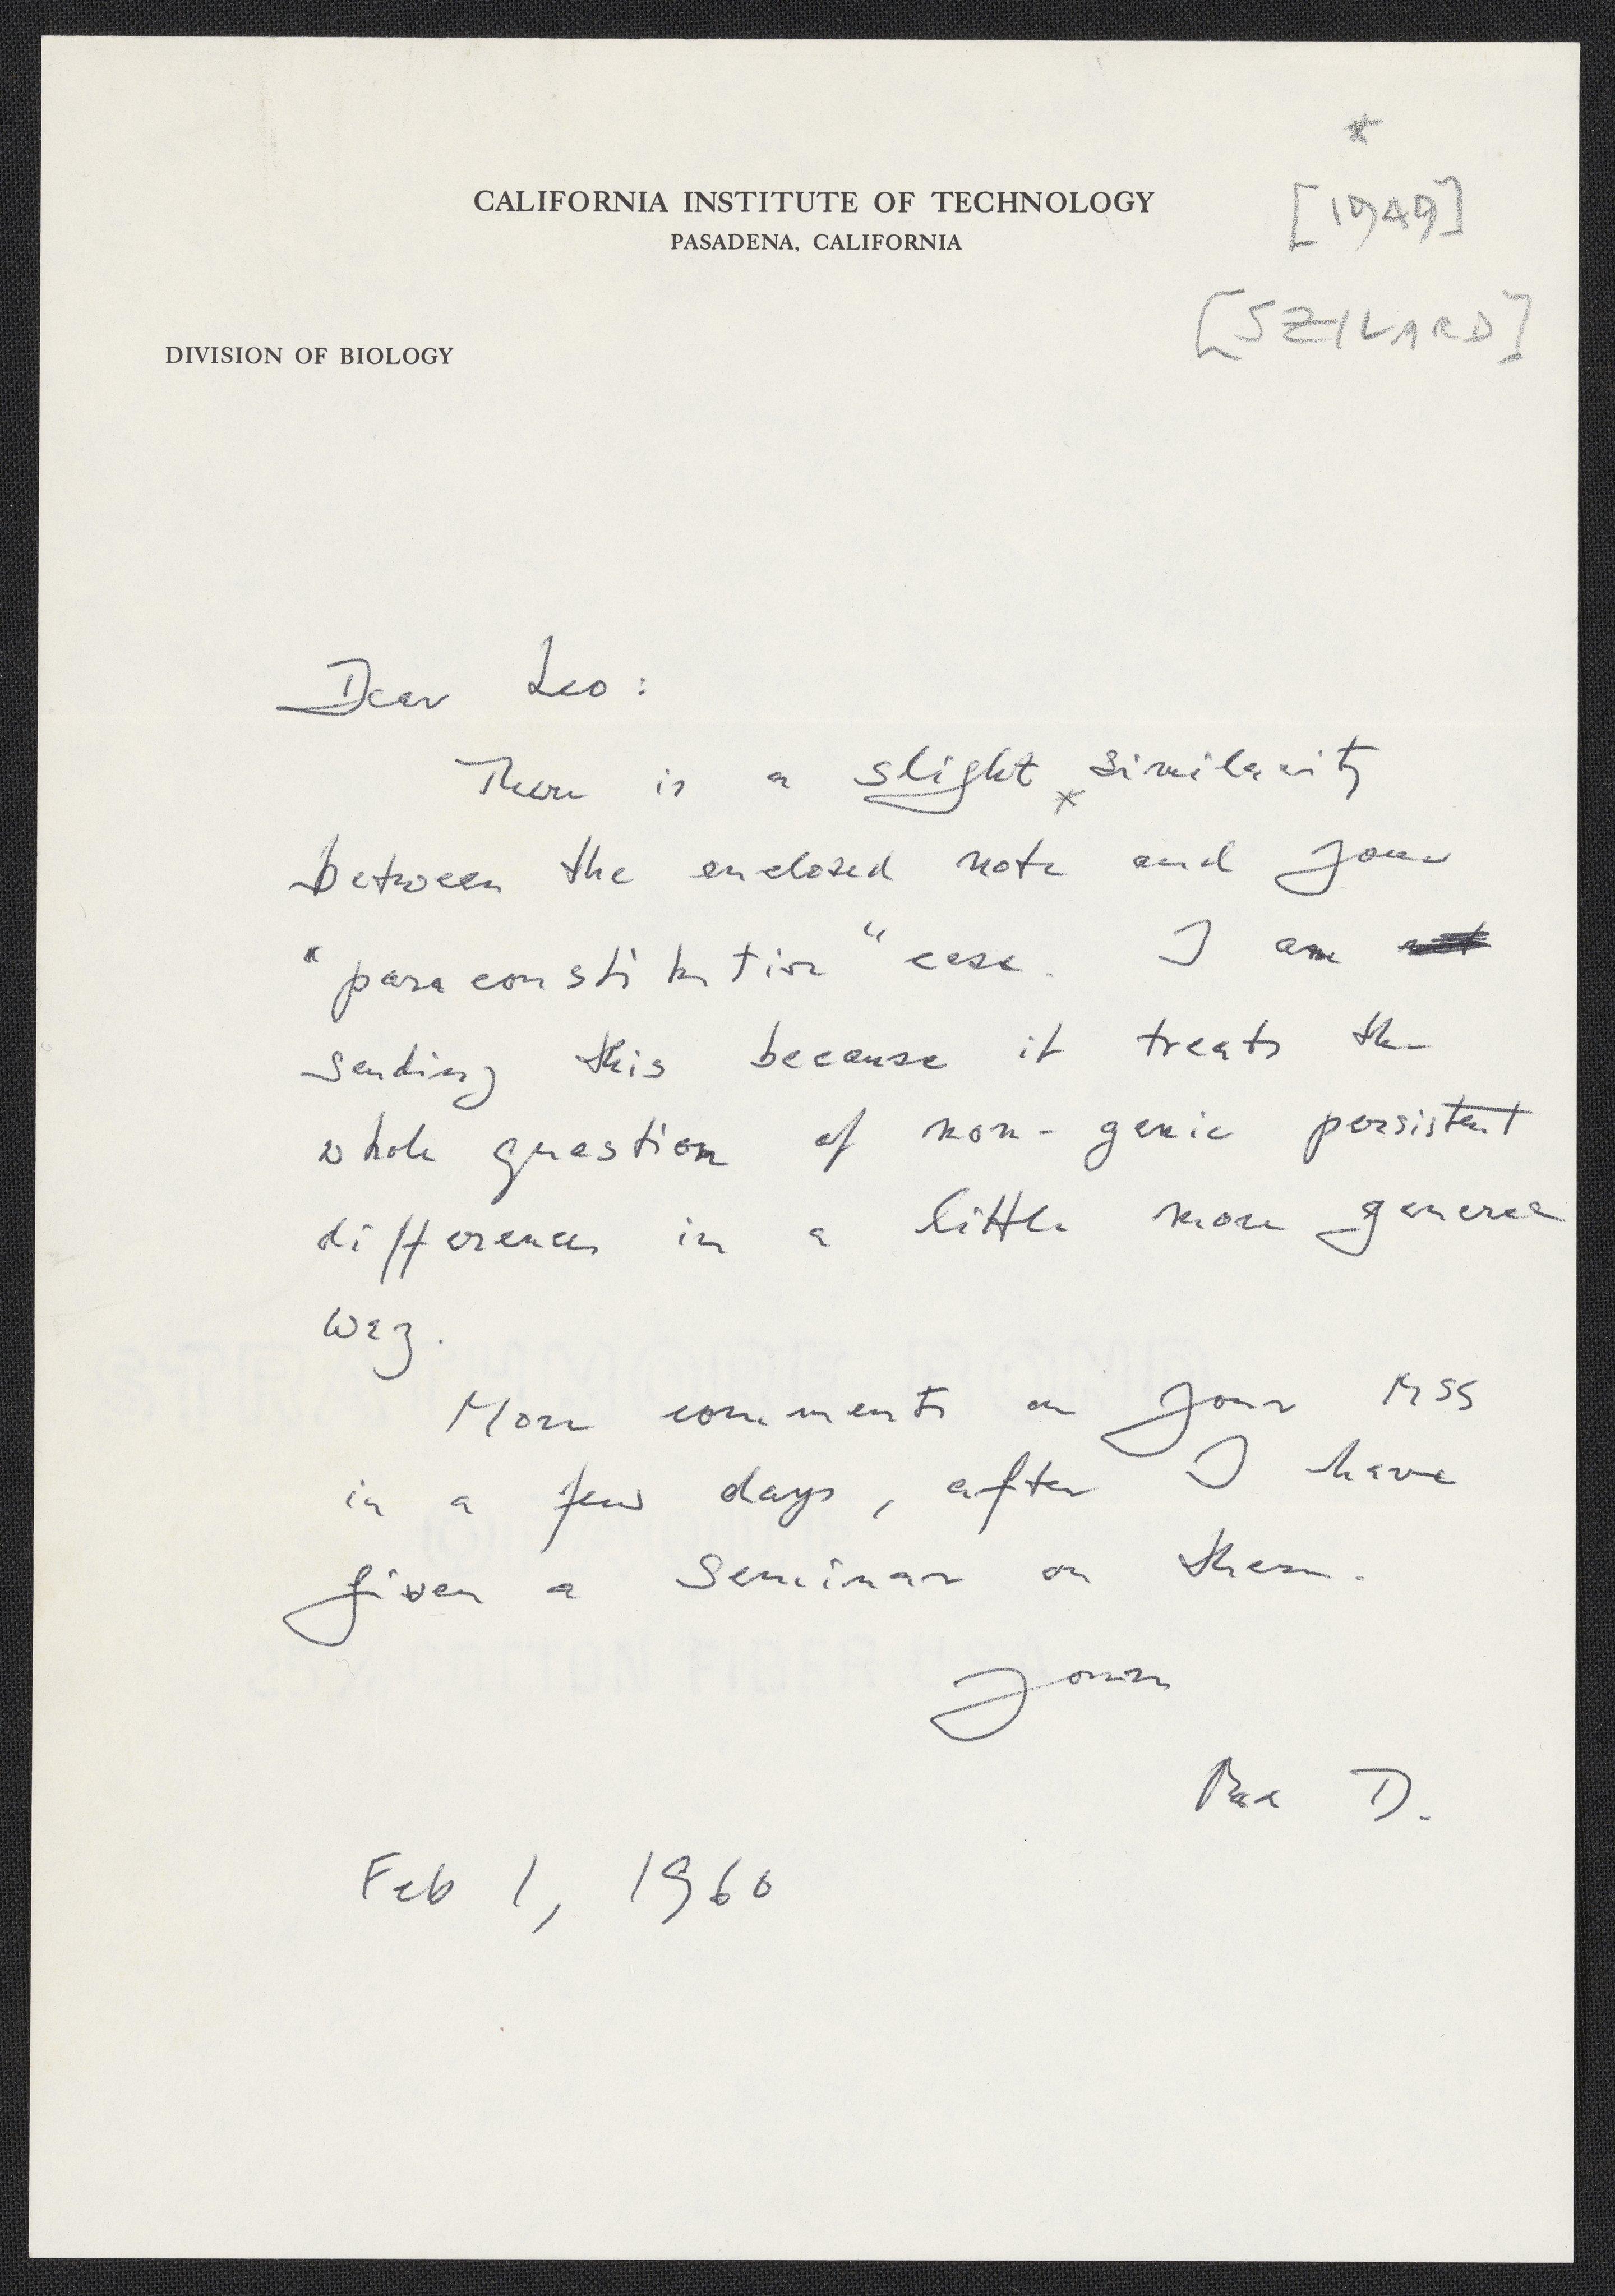 *
CALIFORNIA INSTITUTE OF TECHNOLOGY
[1949]
PASADENA, CALIFORNIA
[SZILARD]
DIVISION OF BIOLOGY
Dear Leo:
There is a slight * similarity
between the enclosed note and your
"paraconstitution" case. I am
sending this because it treats the
whole question of non-genic persistent
differences in a little more general
way.
More comments on your MSS
in a few days, after I have
given a seminar on them.
Yours
Max D.
Feb 1, 1960